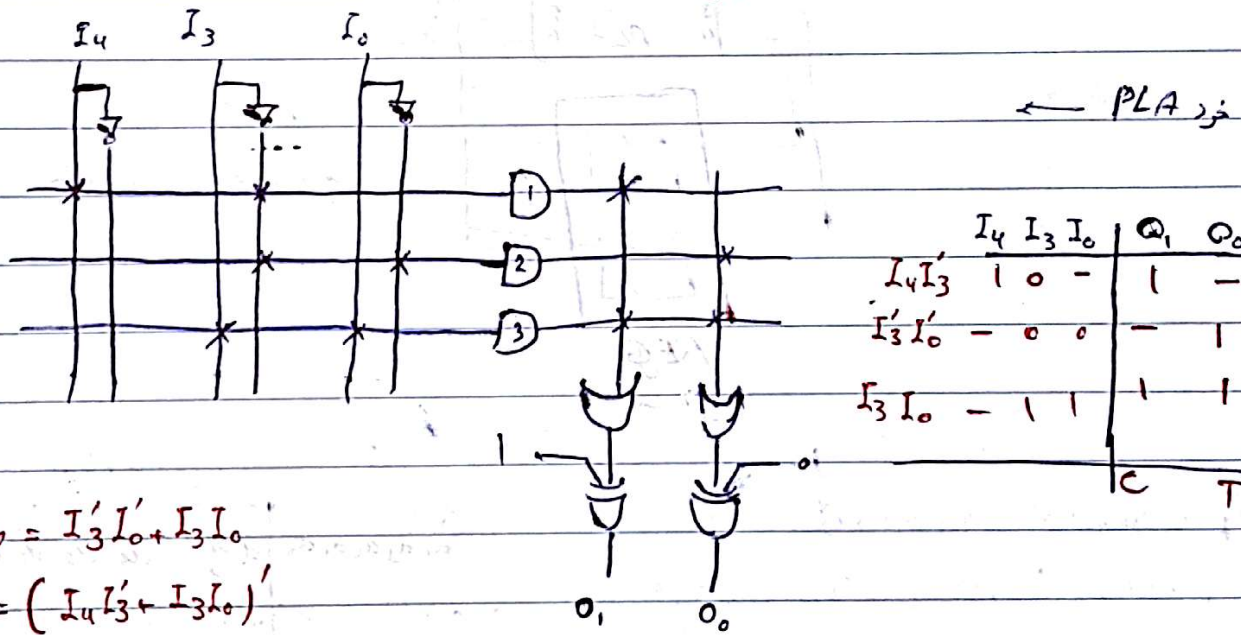 I₄ I₃ I₀
← PLA
1
2
3
I₄ I₃ I₀ Q₁ Q₀
I₄I₃' 1 0 - 1 -
I₃'I₀' - 0 0 - 1
I₃ I₀ - 1 1 1 1
C T
1 0
= I₃'I₀' + I₃I₀
= (I₄I₃' + I₃I₀)'
O₁ O₀